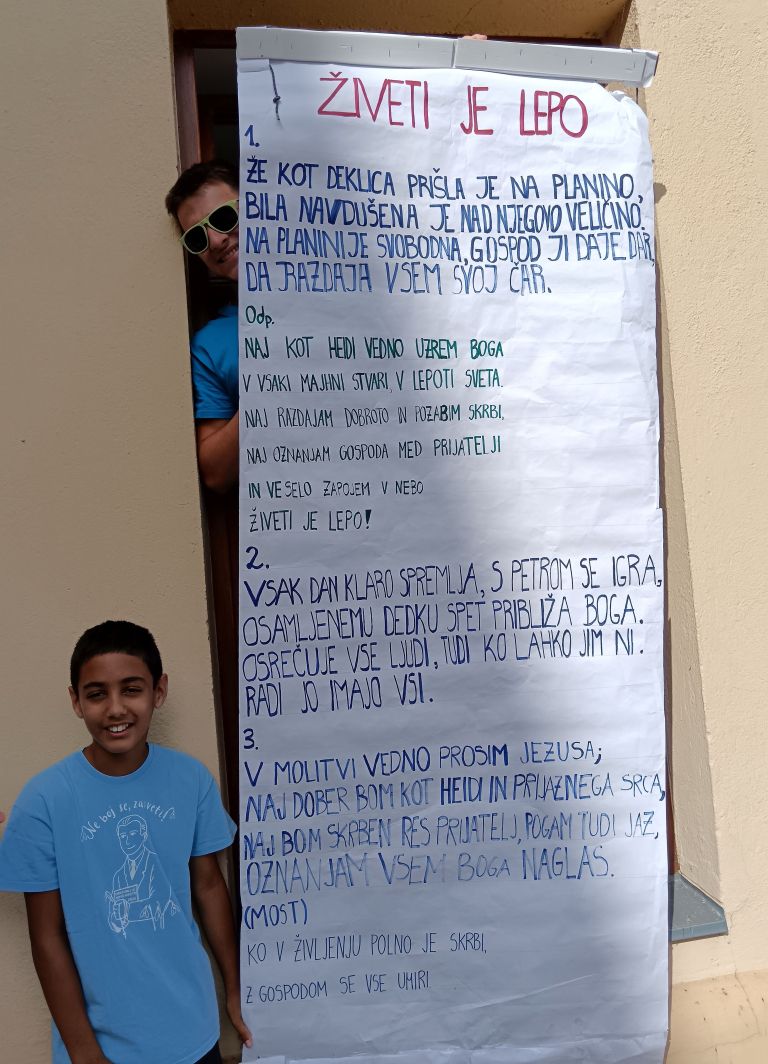 ŽIVETI JE LEPO
1.
ŽE KOT DEKLICA PRIŠLA JE NA PLANINO,
BILA NAVDUŠENA JE NAD NJEGOVO VELIČINO.
NA PLANINI JE SVOBODNA, GOSPOD JI DAJE DAR,
DA RAZDAJA VSEM SVOJ ČAR.
Odp.
NAJ KOT HEIDI VEDNO UZREM BOGA
V VSAKI MAJHNI STVARI, V LEPOTI SVETA.
NAJ RAZDAJAM DOBROTO IN POZABIM SKRBI,
NAJ OZNANJAM GOSPODA MED PRIJATELJI
IN VESELO ZAPOJEM V NEBO
ŽIVETI JE LEPO!
2.
VSAK DAN KLARO SPREMLJA, S PETROM SE IGRA,
OSAMLJENEMU DEDKU SPET PRIBLIŽA BOGA.
OSREČUJE VSE LJUDI, TUDI KO LAHKO JIM NI.
RADI JO IMAJO VSI.
3.
V MOLITVI VEDNO PROSIM JEZUSA;
NAJ DOBER BOM KOT HEIDI IN PRIJAZNEGA SRCA,
NAJ BOM SKRBEN RES PRIJATELJ, POGAM TUDI JAZ,
OZNANJAM VSEM BOGA NAGLAS.
(MOST)
KO V ŽIVLJENJU POLNO JE SKRBI,
Z GOSPODOM SE VSE UMIRI.
Ne boj se, zaveti!